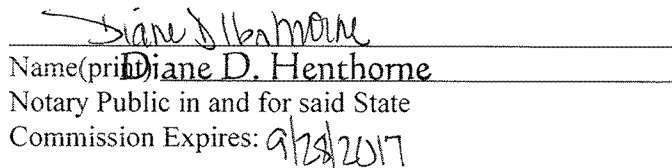 Diane D Henthorne
Name(print)Diane D. Henthorne
Notary Public in and for said State
Commission Expires: 9/28/2017